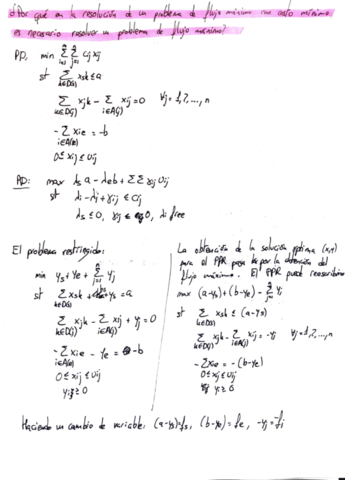 ¿Por qué en la resolución de un problema de flujo máximo con costo mínimo
es necesario resolver un problema de flujo máximo?
PD: min Σ Σ cij xij
st Σ xsk ≤ a
k∈D(s)
Σ xjk - Σ xij = 0 ∀j = 1, 2, ..., n
k∈D(j) i∈A(j)
- Σ xie = -b
i∈A(e)
0 ≤ xij ≤ Uij
PD: max λs a - λe b + Σ Σ γij Uij
st λi - λj + γij ≤ cij
λs ≤ 0, γij ≤ 0, λj free
El problema restringido:
min ys + ye + Σ yj
st Σ xsk + ys = a
k∈D(s)
Σ xjk - Σ xij + yj = 0
k∈D(j) i∈A(j)
- Σ xie - ye = -b
i∈A(e)
0 ≤ xij ≤ Uij
yj ≥ 0
La obtención de la solución óptima (x,y)
para el PPR pasa por la obtención del
flujo máximo. El PPR puede reescribirse
max (a-ys) + (b-ye) - Σ yj
st Σ xsk ≤ (a-ys)
k∈D(s)
Σ xjk - Σ xij = -yj ∀j = 1, 2, ..., n
k∈D(j) i∈A(j)
- Σ xie = -(b-ye)
0 ≤ xij ≤ Uij
yj ≥ 0
Haciendo un cambio de variable: (a-ys) = fs, (b-ye) = fe, -yj = fj